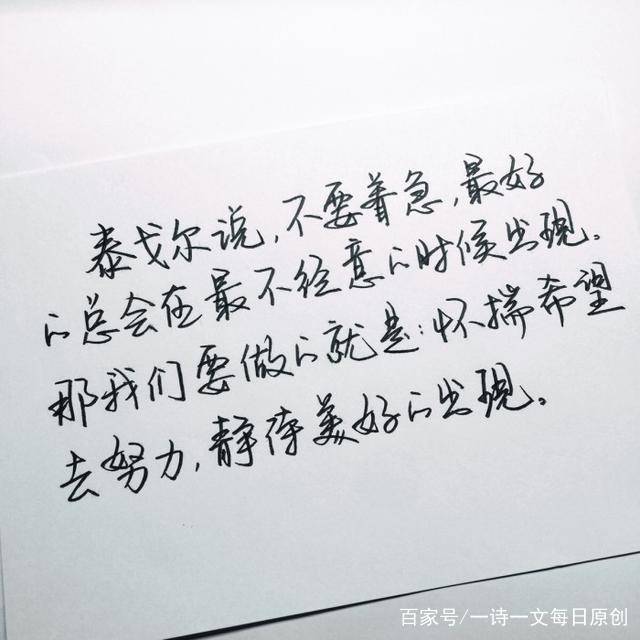 泰戈尔说,不要着急,最好
的总会在最不经意的时候出现。
那我们要做的就是:怀揣希望
去努力,静待美好的出现。
百家号/一诗一文每日原创